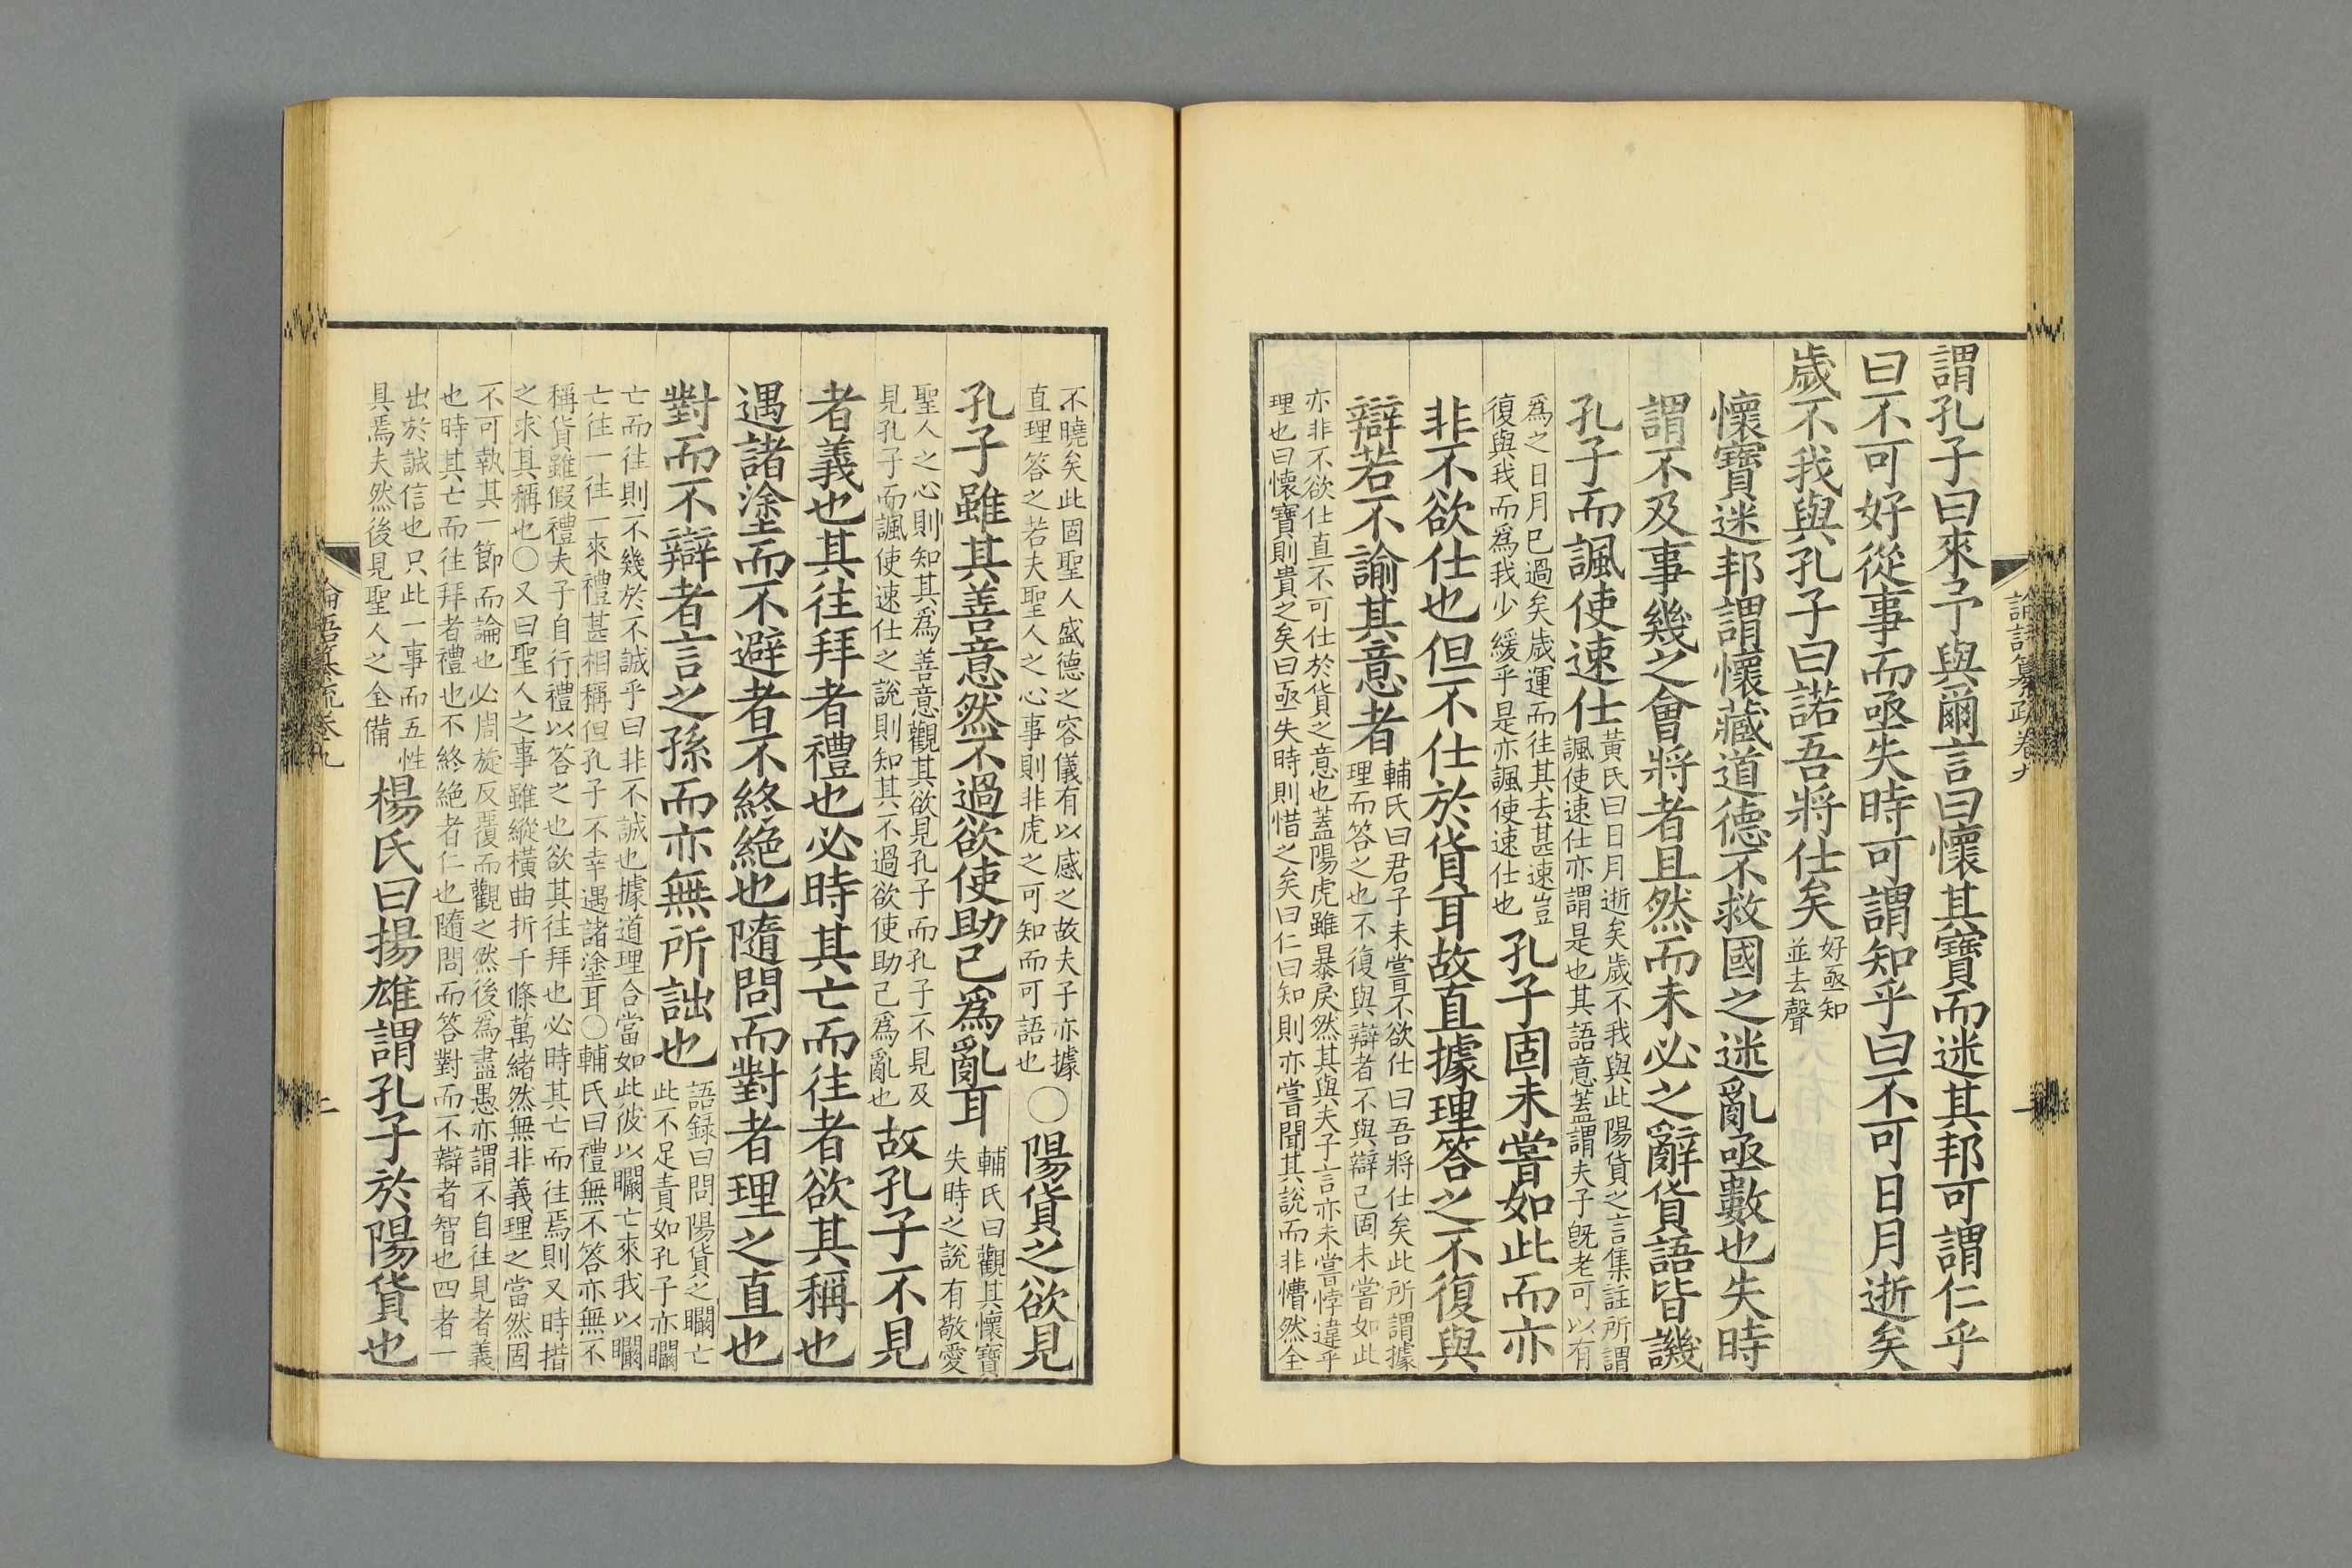 謂孔子曰來予與爾言曰懷其寶而迷其邦可謂仁乎
曰不可好從事而亟失時可謂知乎曰不可日月逝矣
歲不我與孔子曰諾吾將仕矣
好亟知
並去聲
懷寶迷邦謂懷藏道德不救國之迷亂亟數也失時
謂不及事幾之會將者且然而未必之辭貨語皆譏
孔子而諷使速仕
黃氏曰日月逝矣歲不我與此陽貨之言集註所謂
諷使速仕亦謂是也其語意蓋謂夫子旣老可以有
爲之日月已過矣歲運而往其去甚速豈
復與我而爲我少緩乎是亦諷使速仕也
孔子固未嘗如此而亦
非不欲仕也但不仕於貨耳故直據理答之不復與
辯若不諭其意者
輔氏曰君子未嘗不欲仕曰吾將仕矣此所謂據
理而答之也不復與辯者不與辯己固未嘗如此
亦非不欲仕直不可仕於貨之意也蓋陽虎雖暴戾然其與夫子言亦未嘗悖違乎
理也曰懷寶則貴之矣曰亟失時則惜之矣曰仁曰知則亦嘗聞其說而非懵然全
不曉矣此固聖人盛德之容儀有以感之故夫子亦據
直理答之若夫聖人之心事則非虎之可知而可語也
○陽貨之欲見
孔子雖其善意然不過欲使助己爲亂耳
輔氏曰觀其懷寶
失時之說有敬愛
聖人之心則知其爲善意觀其欲見孔子而孔子不見及
見孔子而諷使速仕之說則知其不過欲使助己爲亂也
故孔子不見
者義也其往拜者禮也必時其亡而往者欲其稱也
遇諸塗而不避者不終絕也隨問而對者理之直也
對而不辯者言之孫而亦無所詘也
語録曰問陽貨之矙亡
此不足責如孔子亦矙
亡而往則不幾於不誠乎曰非不誠也據道理合當如此彼以矙亡來我以矙
亡往一往一來禮甚相稱但孔子不幸遇諸塗耳○輔氏曰禮無不答亦無不
稱貨雖假禮夫子自行禮以答之也欲其往拜也必時其亡而往焉則又時措
之求其稱也○又曰聖人之事雖縱橫曲折千條萬緒然無非義理之當然固
不可執其一節而論也必周旋反覆而觀之然後爲盡愚亦謂不自往見者義
也時其亡而往拜者禮也不終絕者仁也隨問而答對而不辯者智也四者一
出於誠信也只此一事而五性
具焉夫然後見聖人之全備
楊氏曰揚雄謂孔子於陽貨也
論語纂疏卷九